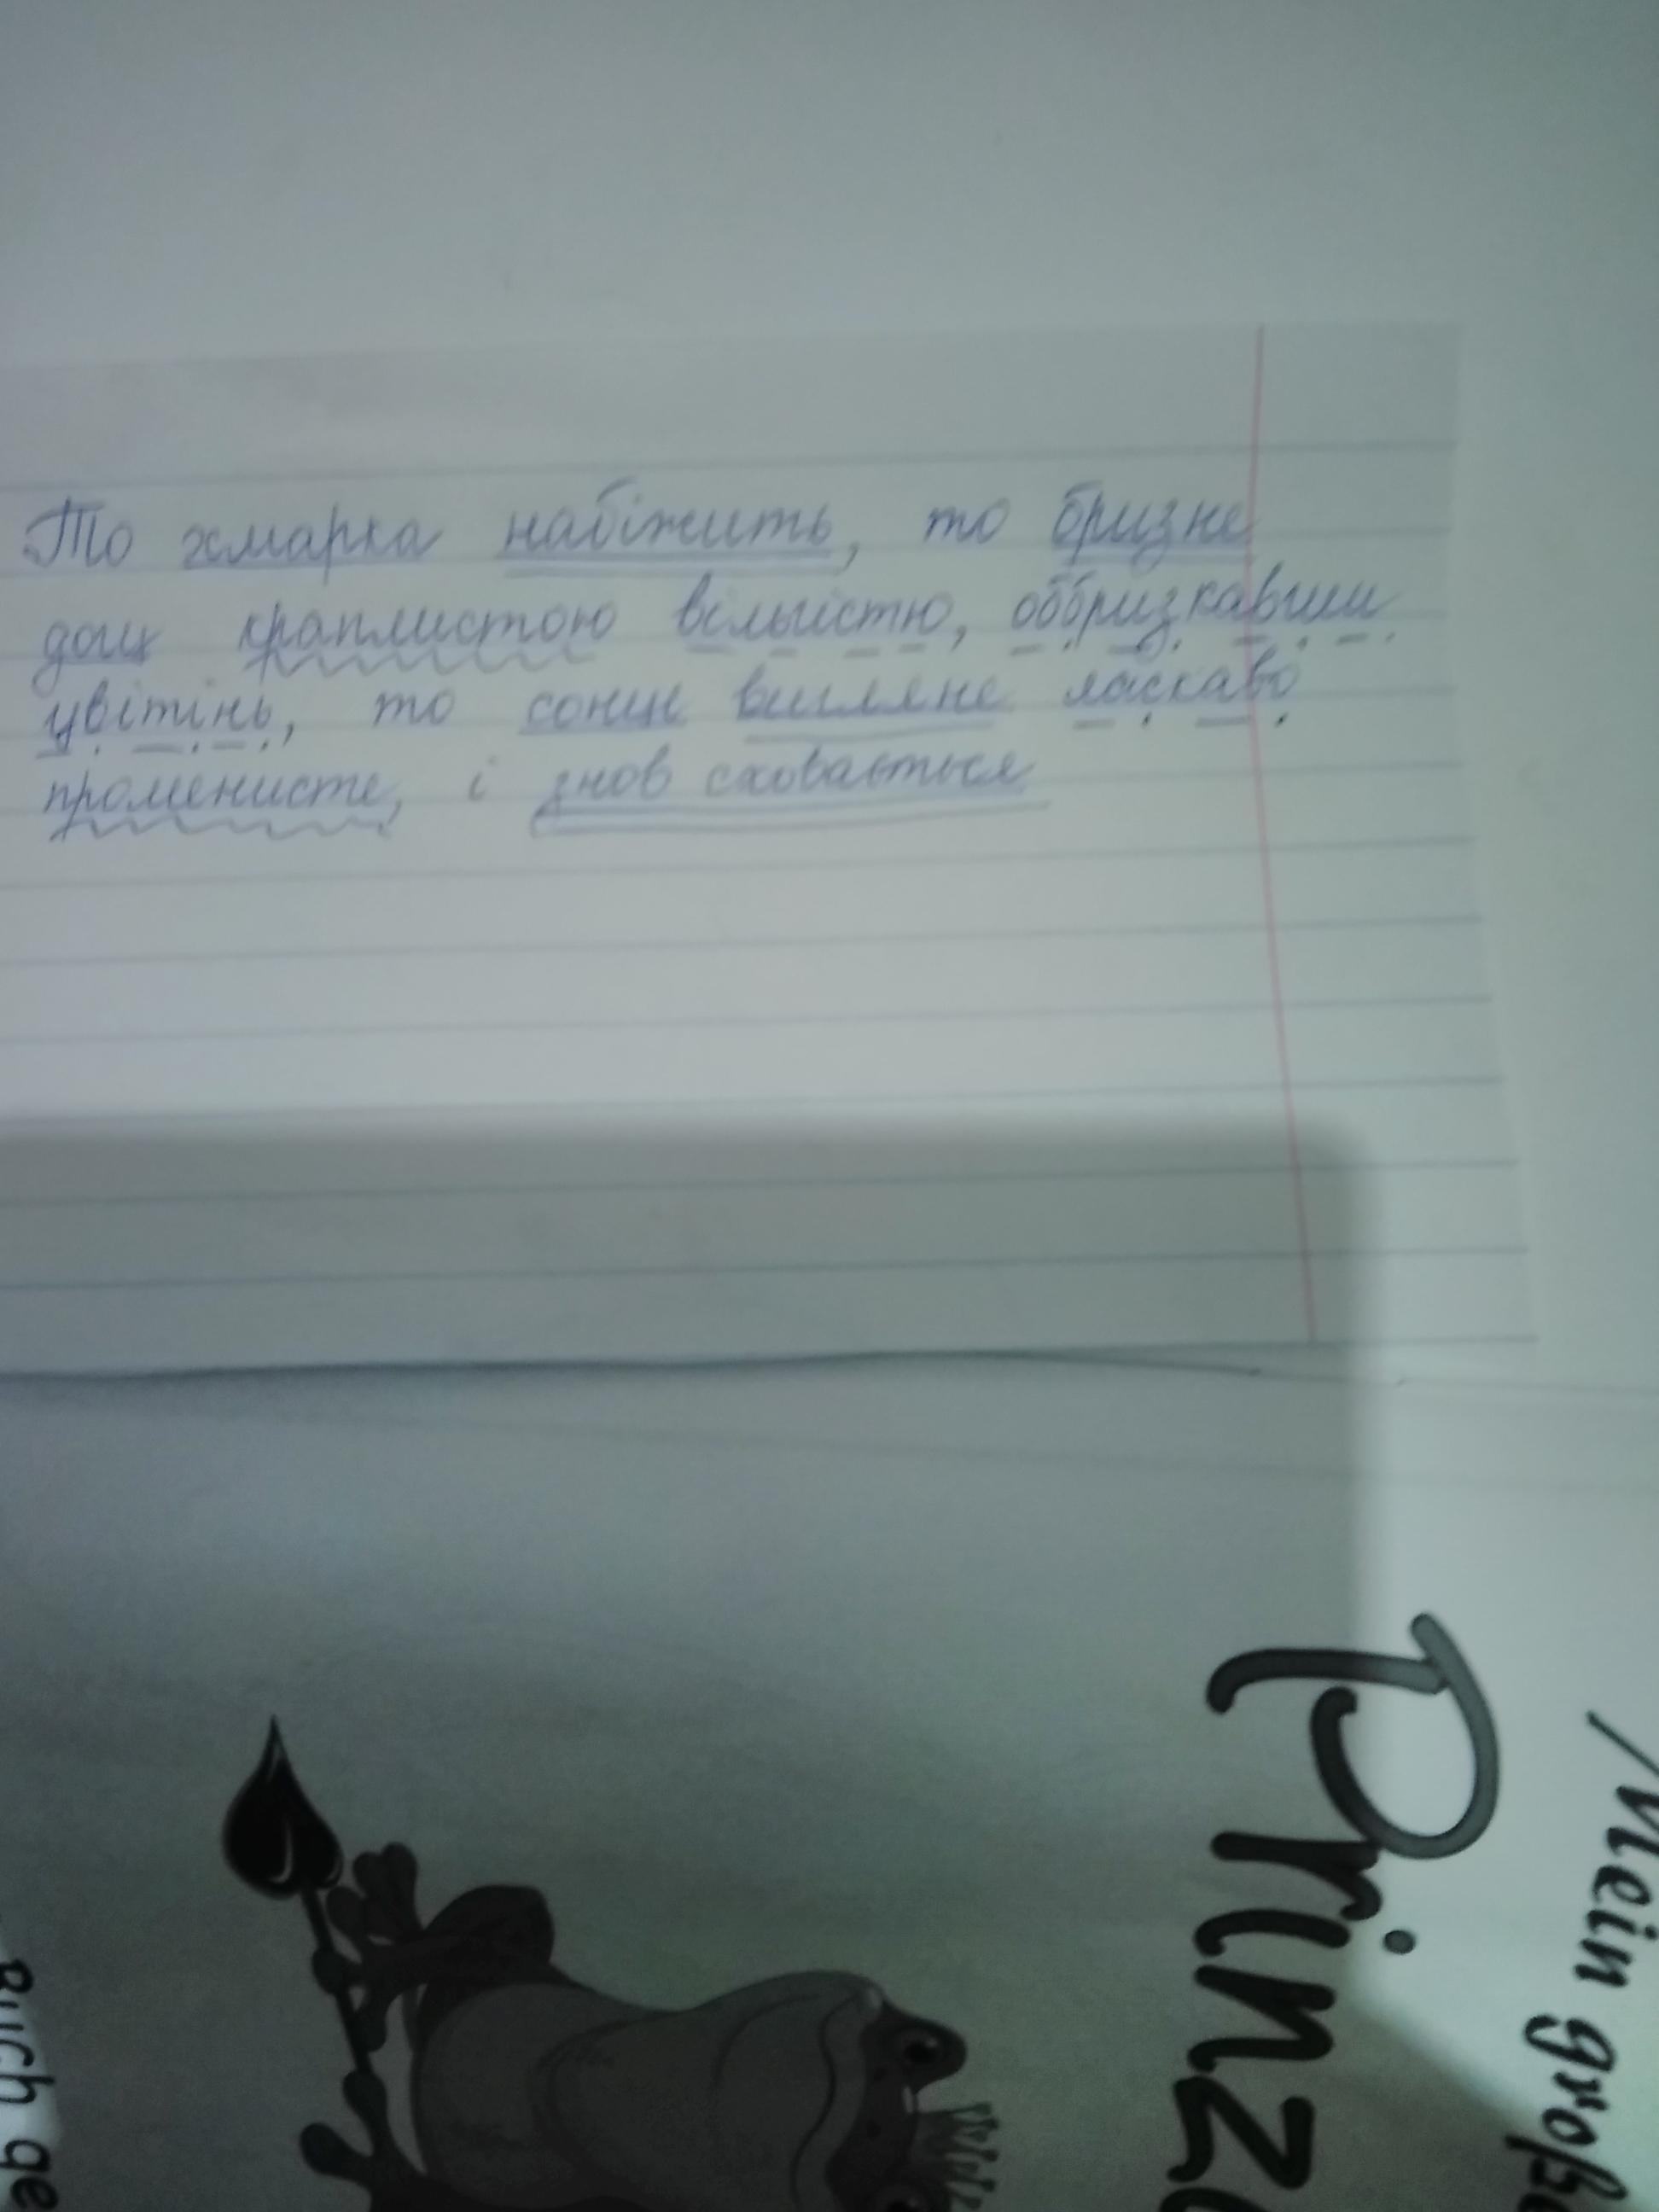 То хмарка набіжить, то бризне
дощ краплистою вільгістю, оббризкавши
цвітінь, то сонце вигляне ласкаво
променисте, і знов сховається
Prinz
Mein große
Buch ge